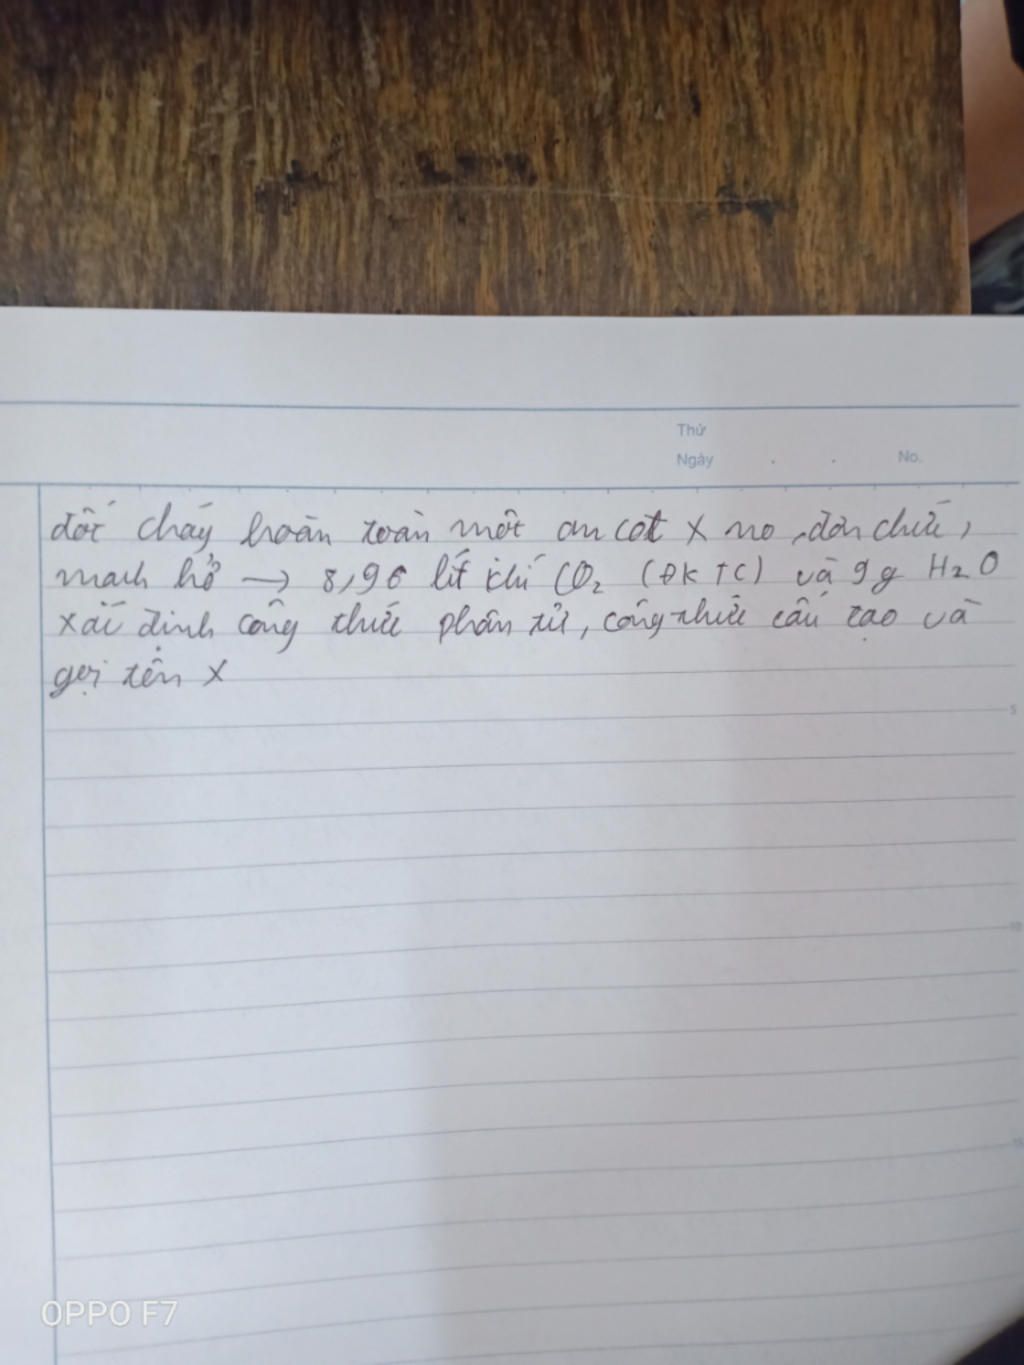 Thứ
Ngày . . No.
đốt cháy hoàn toàn một an cot X no, đơn chức,
mạch hở → 8,96 lít khí CO₂ (ĐKTC) và 9g H₂O
xác định công thức phân tử, công thức cấu tạo và
gọi tên X
5
10
15
OPPO F7